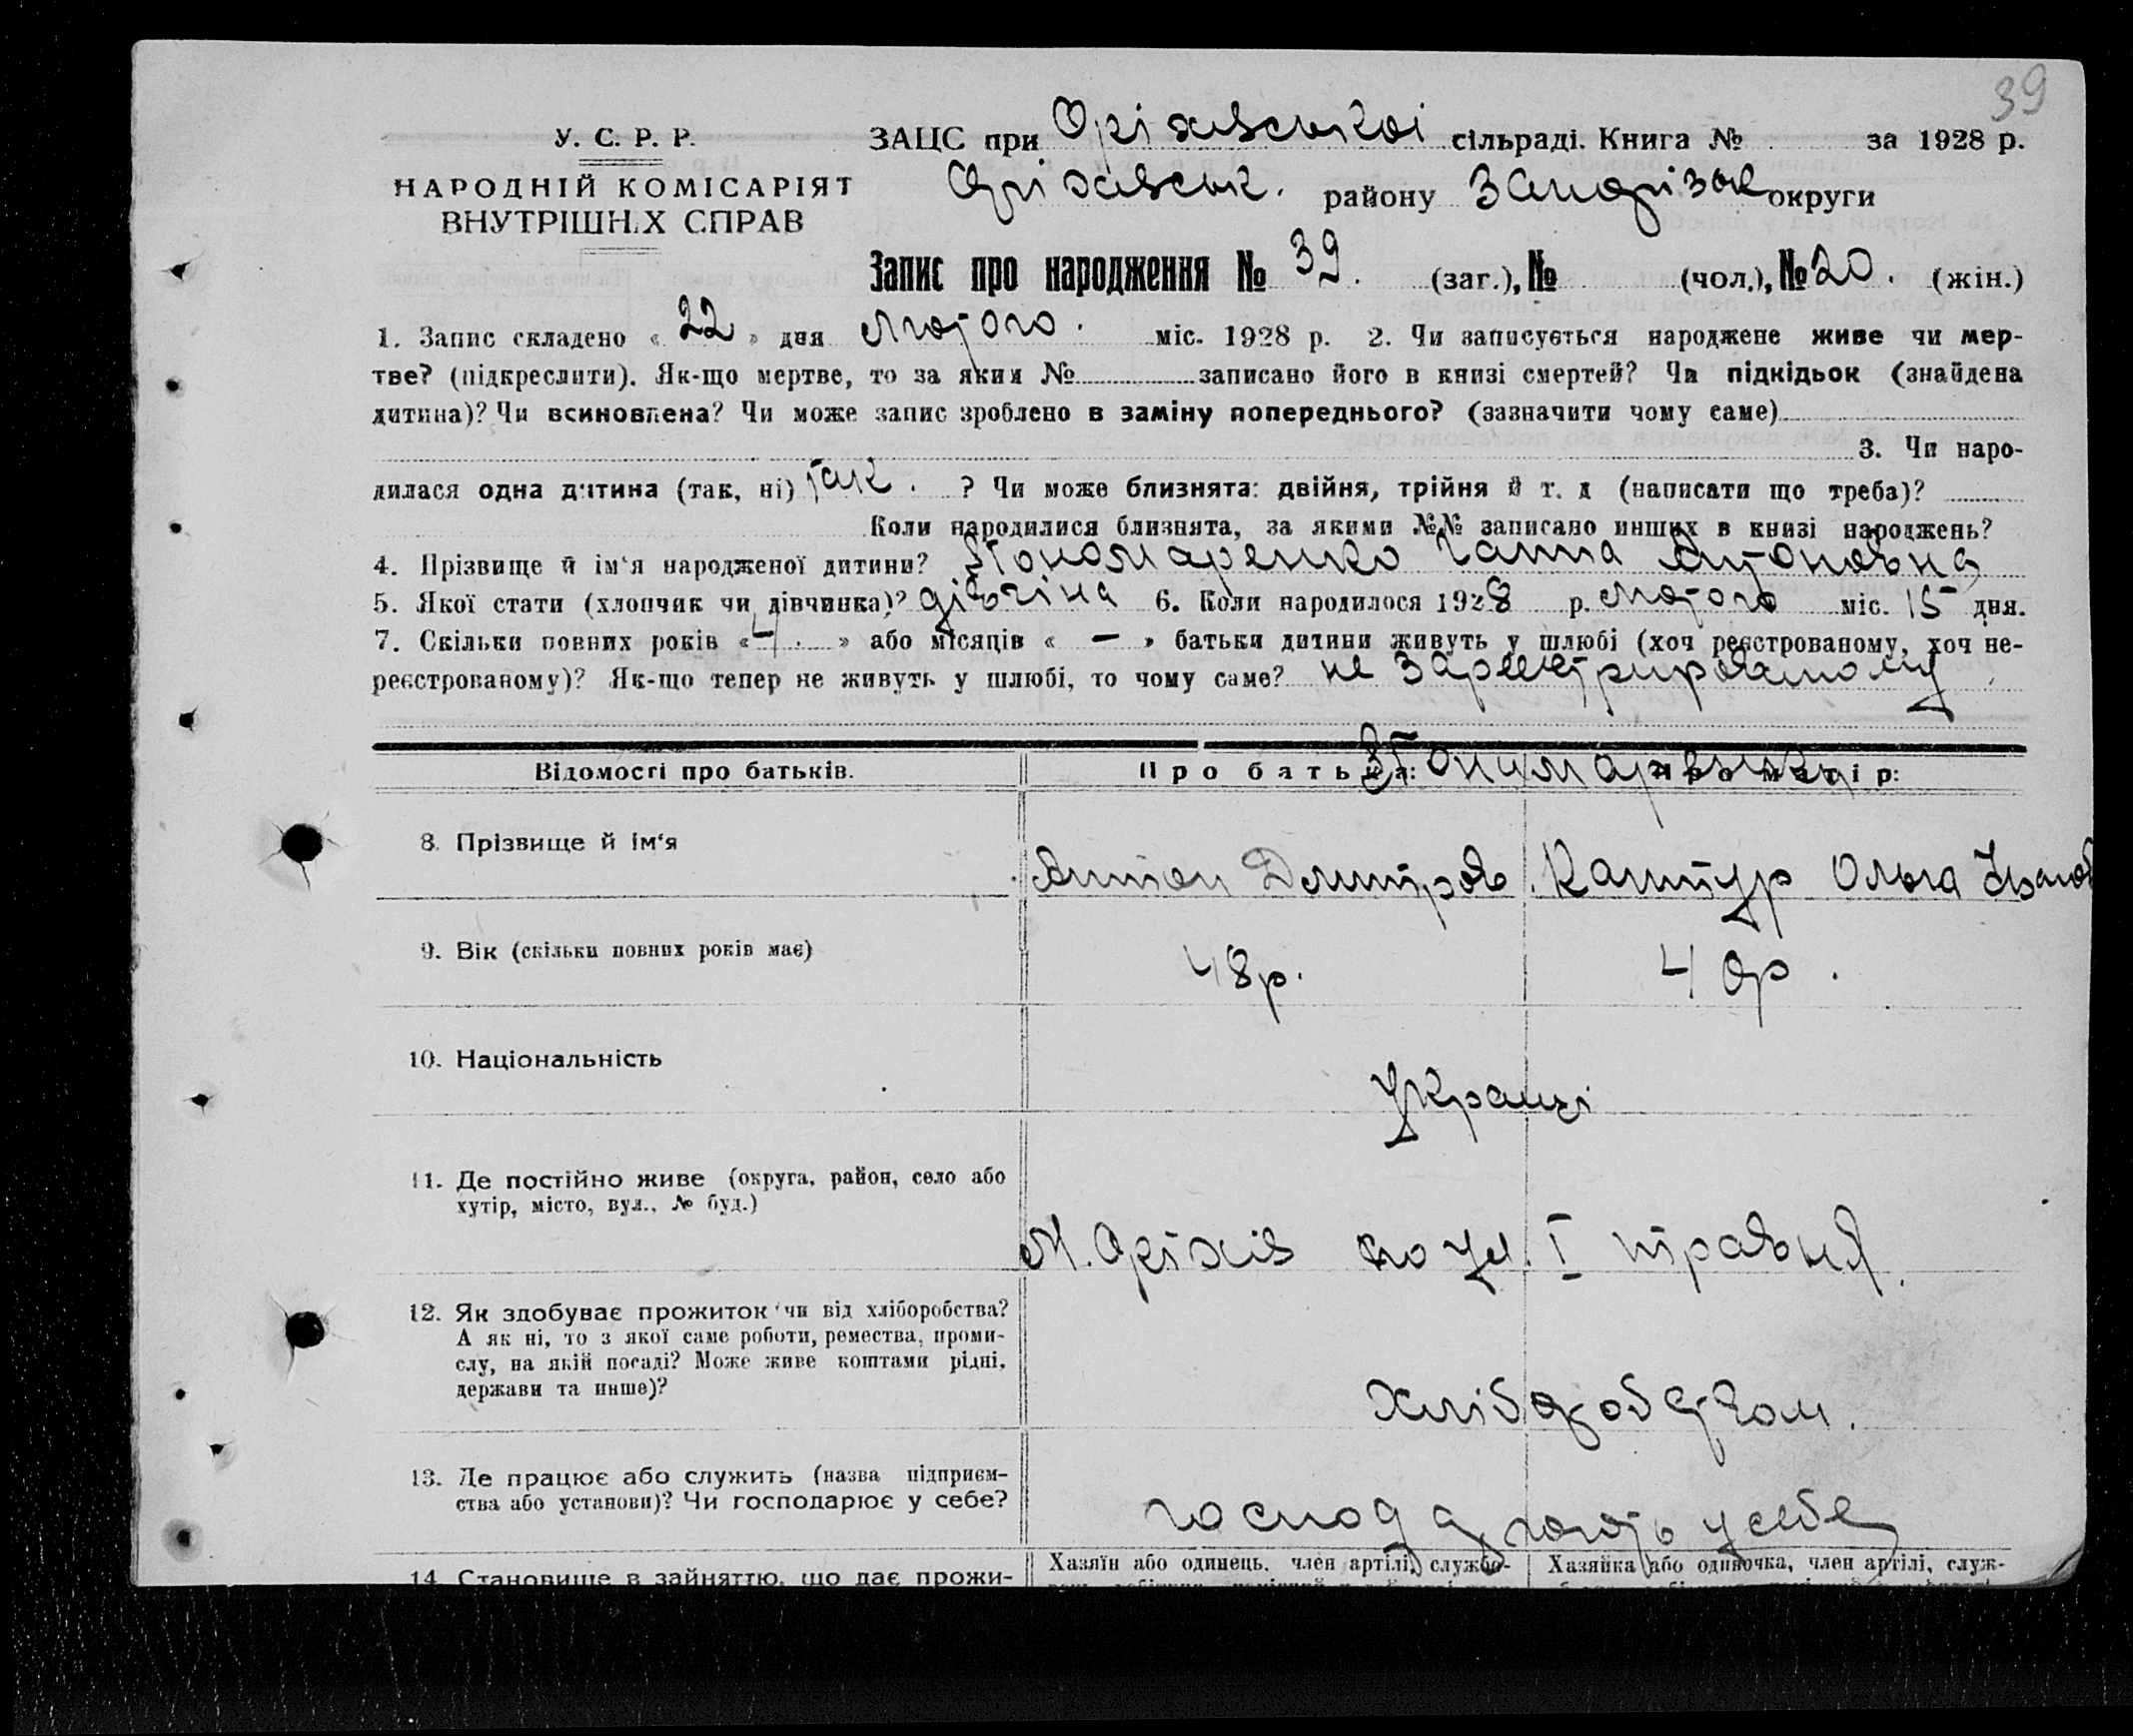 39
У. С. Р. Р.
НАРОДНІЙ КОМІСАРІЯТ
ВНУТРІШНІХ СПРАВ
ЗАЦС при Оріхівської сільраді. Книга № за 1928 р.
Оріхівськ. району Запоріз округи
Запис про народження № 39. (заг.), № (чол.), № 20. (жін.)
1. Запис складено « 22 » дня лютого. міс. 1928 р. 2. Чи записується народжене живе чи мер-
тве? (підкреслити). Як-що мертве, то за яким № записано його в книзі смертей? Чи підкідьок (знайдена
дитина)? Чи всиновлена? Чи може запис зроблено в заміну попереднього? (зазначити чому саме)
3. Чи наро-
дилася одна дитина (так, ні) так. ? Чи може близнята: двійня, трійня й т. д (написати що треба)?
Коли народилися близнята, за якими №№ записано инших в книзі народжень?
4. Прізвище й ім'я народженої дитини? Пономаренко Ганна Антоновна
5. Якої стати (хлопчик чи дівчинка)? дівчіна 6. Коли народилося 1928 р. лютого міс. 15 дня.
7. Скільки повних років « 4. » або місяців « — » батьки дитини живуть у шлюбі (хоч реєстрованому, хоч не-
реєстрованому)? Як-що тепер не живуть у шлюбі, то чому саме? не
Відомості про батьків. Про батька: Про матір:
8. Прізвище й ім'я Антон Дмитров. Кантур Ольга Іванов
9. Вік (скільки повних років має) 48р. 40р.
10. Національність Українці
11. Де постійно живе (округа, район, село або
хутір, місто, вул., № буд.)
М. Оріхів по ул. I травня.
12. Як здобуває прожиток чи від хліборобства?
А як ні, то з якої саме роботи, ремества, проми-
слу, на якій посаді? Може живе коштами рідні,
держави та инше)?
хліборобством.
13. Де працює або служить (назва підприєм-
ства або установи)? Чи господарює у себе?
господарюють у себе
14. Становище в зайняттю, що дає прожи-
Хазяїн або одинець, член артілі, службо-
Хазяйка або одиночка, член артілі, служ-